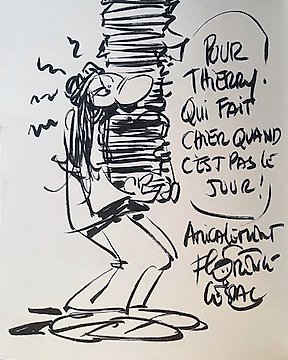 POUR
THIERRY.
QUI FAIT
CHIER QUAND
C'EST PAS LE
JOUR!
AMICALEMENT
FLORENCE
CESTAC